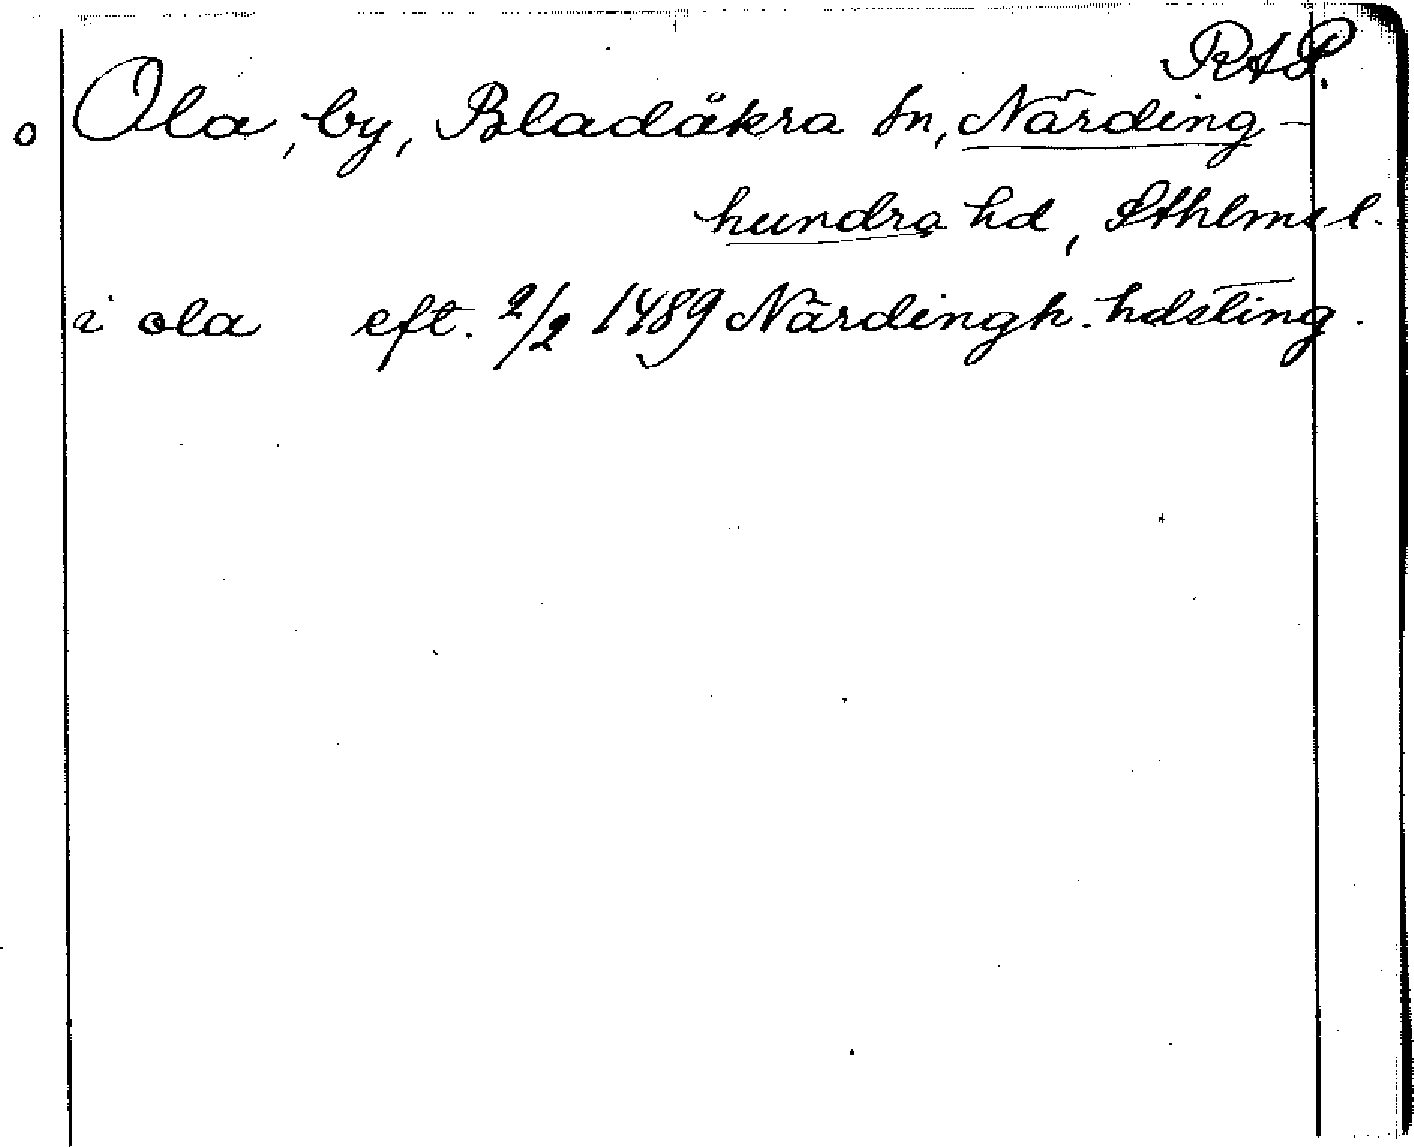 RAP.
o Ola, by, Bladåkra sn, Närding-
hundra hd, Sthlms l.
i ola eft. 2/2 1489 Närdingh. hdsting.